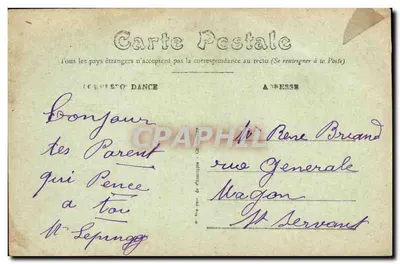 Carte Postale
Tous les pays étrangers n'acceptent pas la correspondance au recto (Se renseigner à la Poste)
DANCE
ADRESSE
Bonjour
tes Parent
qui Pence
a toi
Mr Rene Briand
rue Generale
Magon
St Servant
CPAPHIL